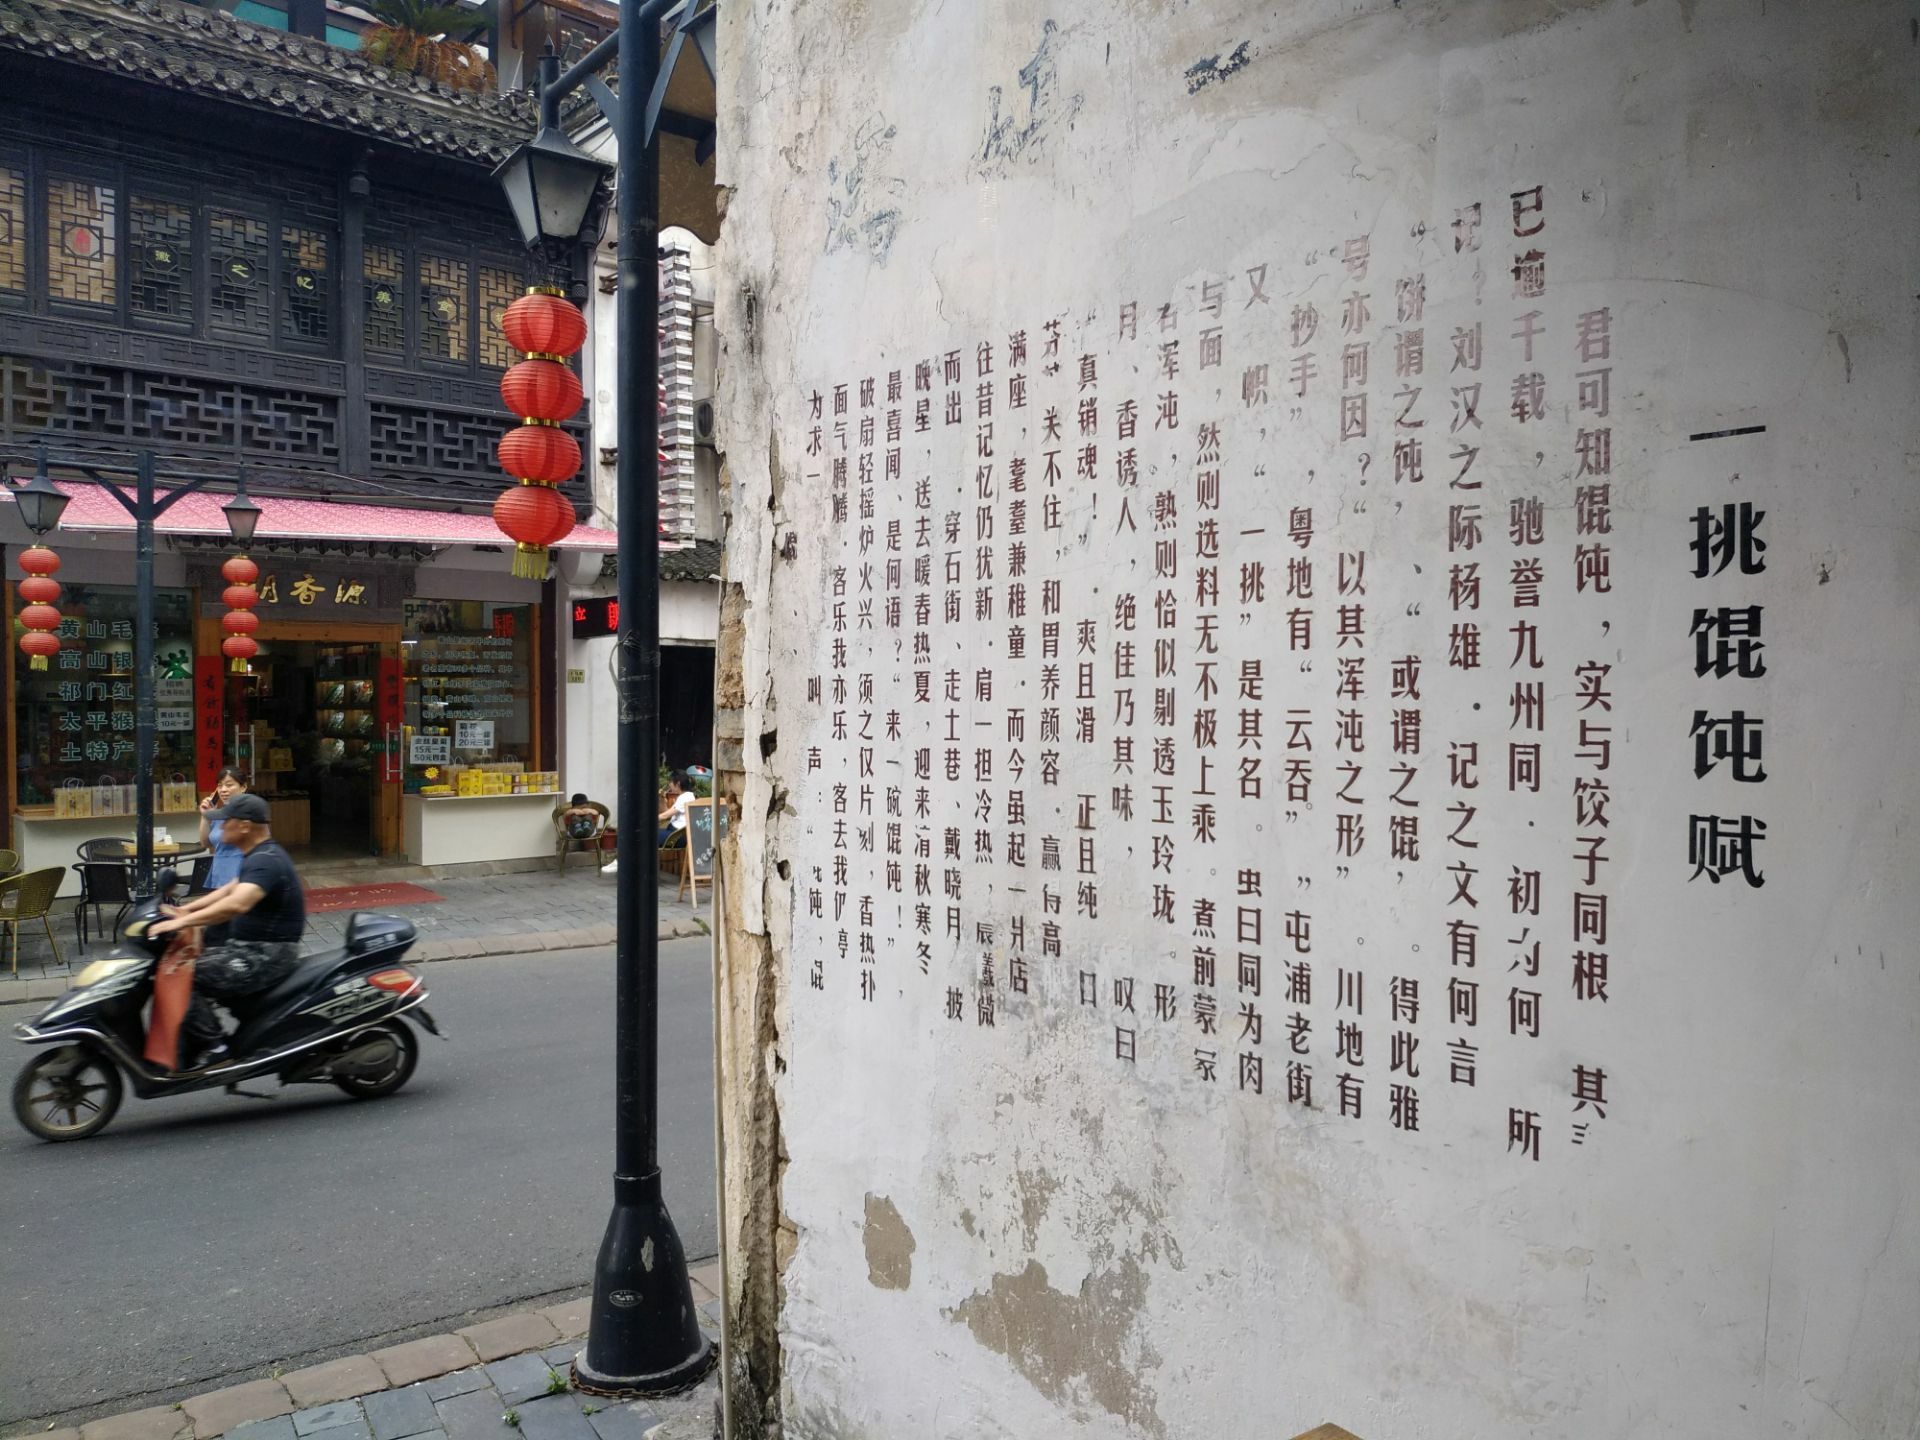 一挑馄饨赋
君可知馄饨，实与饺子同根 其
已逾千载，驰誉九州同．初为何 所
记？刘汉之际杨雄．记之文有何言
“饼谓之饨，、“或谓之馄，。得此雅
号亦何因？“以其浑沌之形”。川地有
“抄手”，粤地有“云吞””屯浦老街
又 帜，“一挑”是其名。虫曰同为肉
与面，然则选料无不极上乘。煮前蒙
若浑沌，熟则恰似剔透玉玲珑。形
月、香诱人，绝佳乃其味， 叹曰
“真销魂！”．爽且滑 正且纯 口
芬 关不住，和胃养颜容．赢得高
满座，耄耋兼稚童．而今虽起一片店
往昔记忆仍犹新．肩一担冷热，晨曦微
而出．穿石街、走土巷、戴晓月 披
晚星，送去暖春热夏，迎来清秋寒冬
最喜闻、是何语？“来一碗馄饨！”，
破扇轻摇炉火兴，须之仅片刻，香热扑
面气腾腾．客乐我亦乐，客去我仍亭
为求一 叫声：“ 饨，混
徽之忆美食
明香源
黄山毛
高山银
祁门红
太平猴
土特产
黄山毛峰
10元一罐
15元一盒
50元四盒
10元一罐
20元三罐